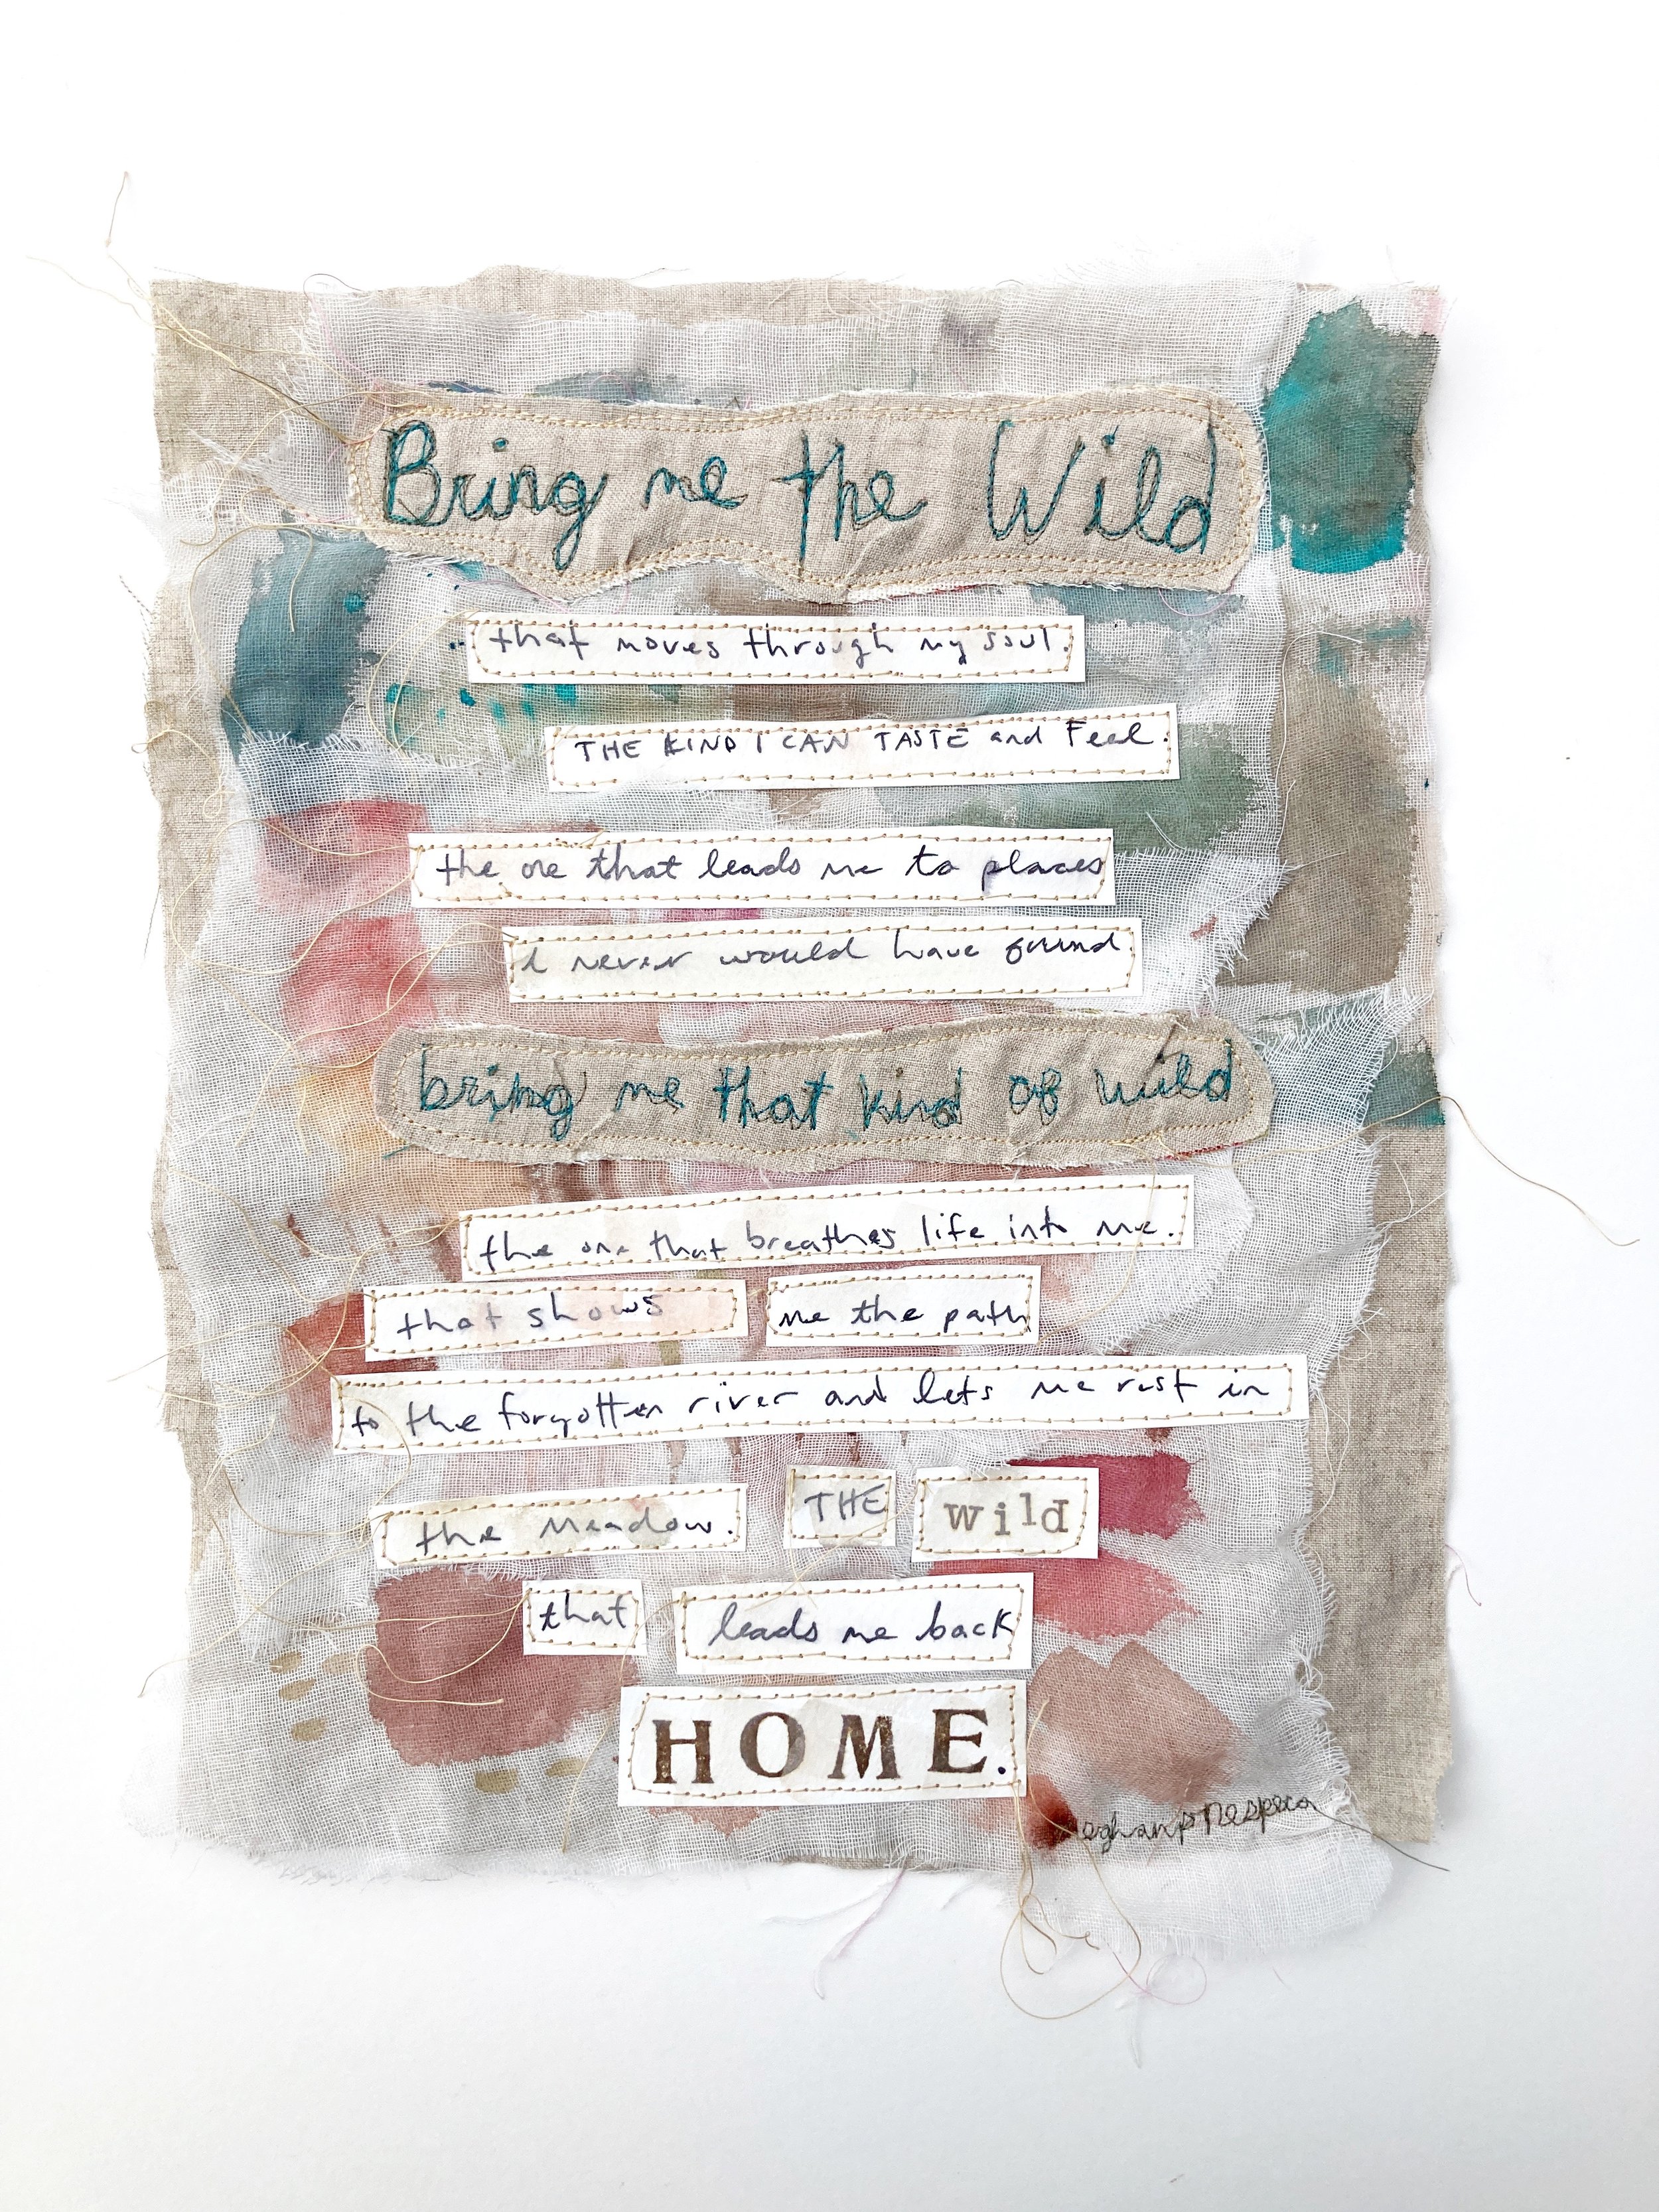 Bring me the Wild
..that moves through my soul.
THE KIND I CAN TASTE and Feel.
the one that leads me to places
I never would have found
bring me that kind of wild
the one that breathes life into me.
that shows me the path
to the forgotten river and lets me rest in
the meadow. THE wild
that leads me back
HOME.